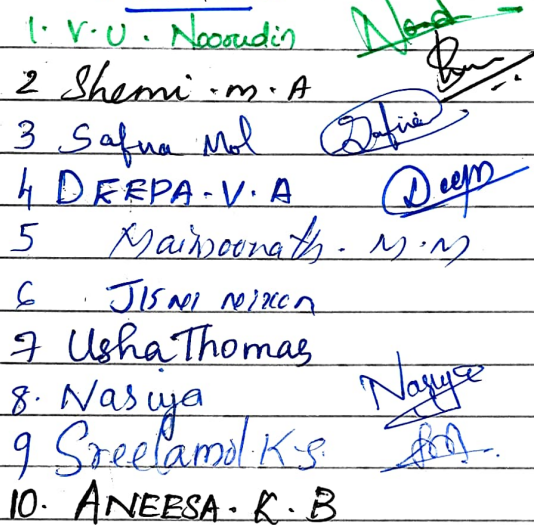 1. V. U. Noorudin
2 Shemi . m . A
3 Safna Mol Safna
4 DEEPA . V . A Deepa
5 Maimoonath . M . M
6 . JISMI
7 Usha Thomas
8. Nasiya Nasiya
9 Sreelamol . K . S.
10. ANEESA . K . B